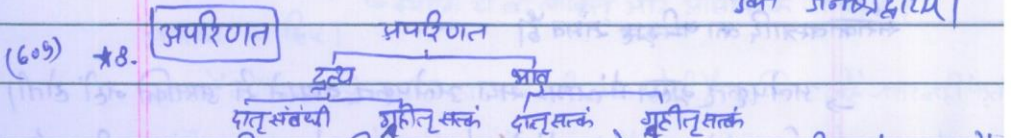 (609) ★8. अपरिणत अपरिणत
द्रव्य भाव
दातृसंबंधी गृहीतृसत्कं दातृसत्कं गृहीतृसत्कं